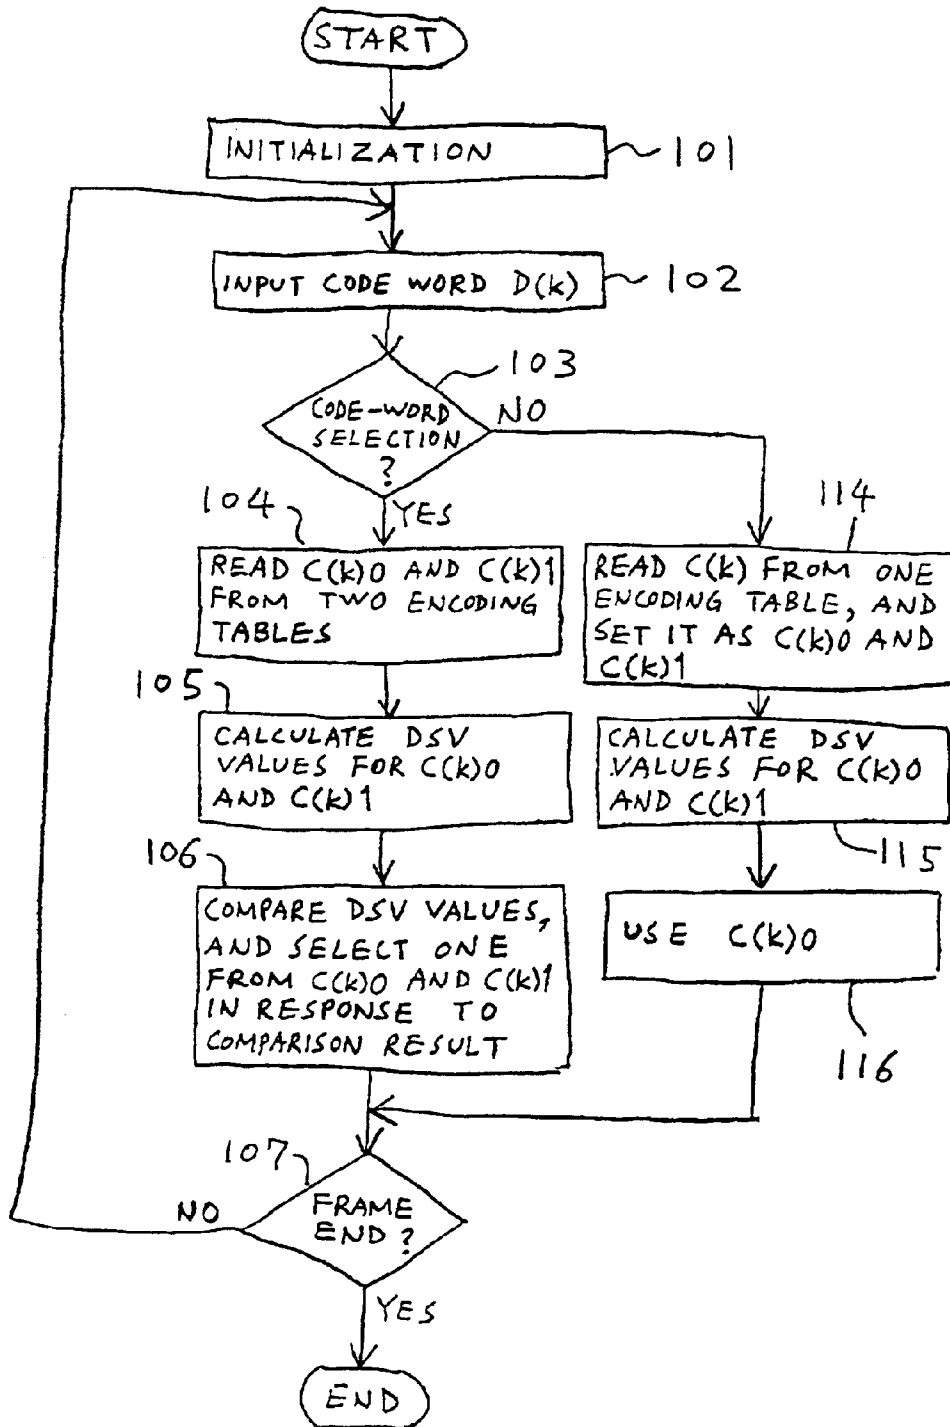 START
INITIALIZATION
101
INPUT CODE WORD D(k)
102
103
CODE-WORD
SELECTION
?
NO
YES
104
READ C(k)0 AND C(k)1
FROM TWO ENCODING
TABLES
114
READ C(k) FROM ONE
ENCODING TABLE, AND
SET IT AS C(k)0 AND
C(k)1
105
CALCULATE DSV
VALUES FOR C(k)0
AND C(k)1
CALCULATE DSV
VALUES FOR C(k)0
AND C(k)1
115
106
COMPARE DSV VALUES,
AND SELECT ONE
FROM C(k)0 AND C(k)1
IN RESPONSE TO
COMPARISON RESULT
USE C(k)0
116
107
FRAME
END ?
NO
YES
END